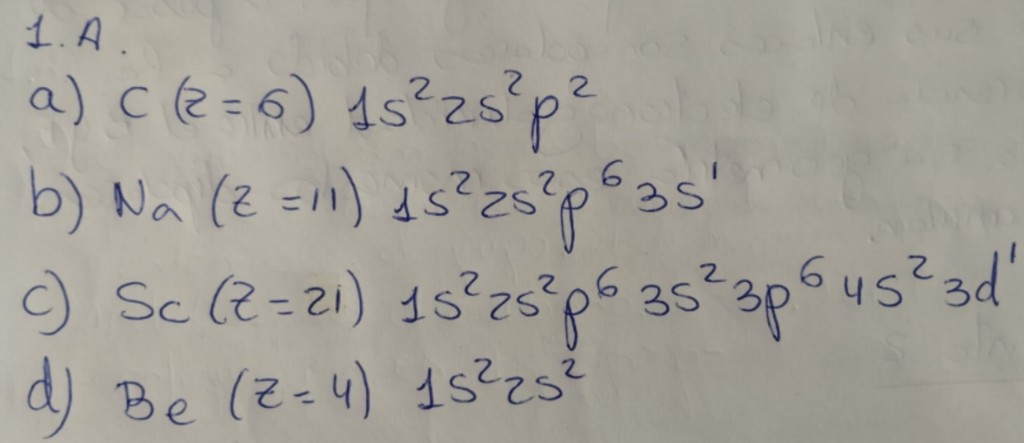 1. A.
a) C (z = 6) 1s²2s²p²
b) Na (z = 11) 1s²2s²p⁶3s¹
c) Sc (z = 21) 1s²2s²p⁶3s²3p⁶4s²3d¹
d) Be (z = 4) 1s²2s²